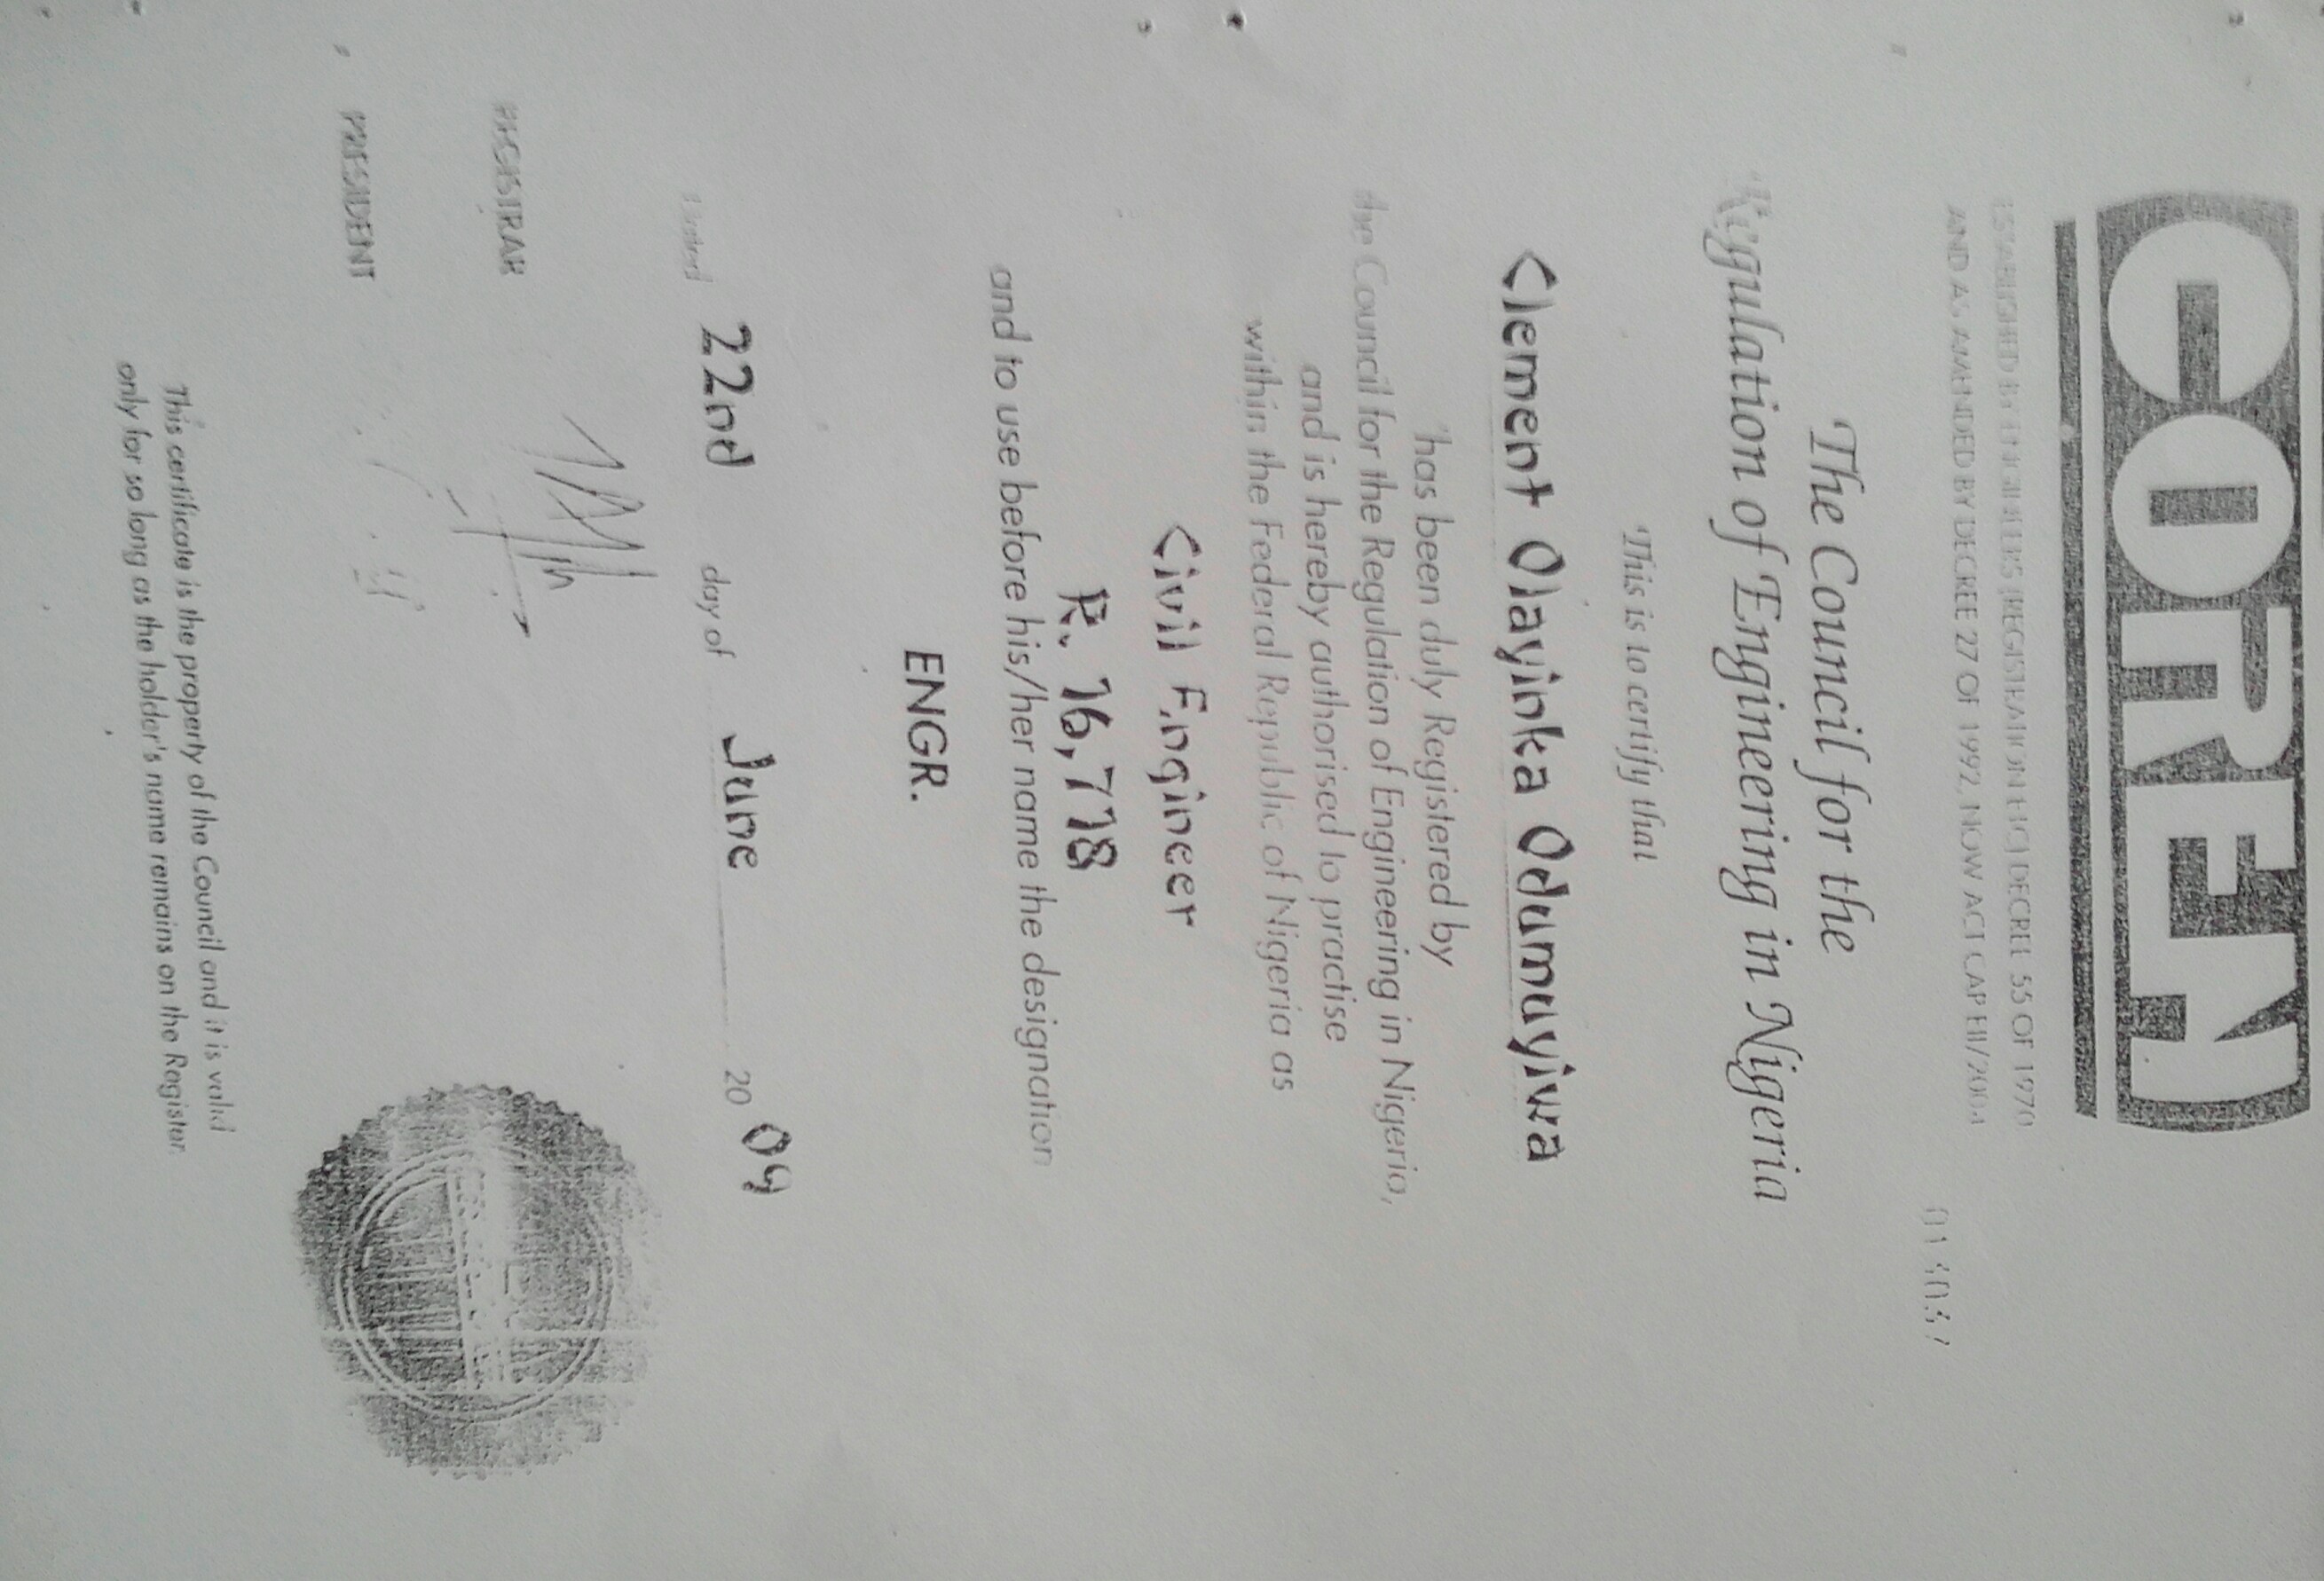 COREN
ESTABLISHED BY ENGINEERS (REGISTRATION ETC) DECREE 55 OF 1970
AND AS AMENDED BY DECREE 27 OF 1992, NOW ACT CAP E11/2004
The Council for the
Regulation of Engineering in Nigeria
This is to certify that
Clement Olayinka Odumuyiwa
has been duly Registered by
the Council for the Regulation of Engineering in Nigeria,
and is hereby authorised to practise
within the Federal Republic of Nigeria as
Civil Engineer
R. 16,778
and to use before his/her name the designation
ENGR.
Dated 22nd day of June 2009
REGISTRAR
PRESIDENT
This certificate is the property of the Council and it is valid
only for so long as the holder's name remains on the Register.